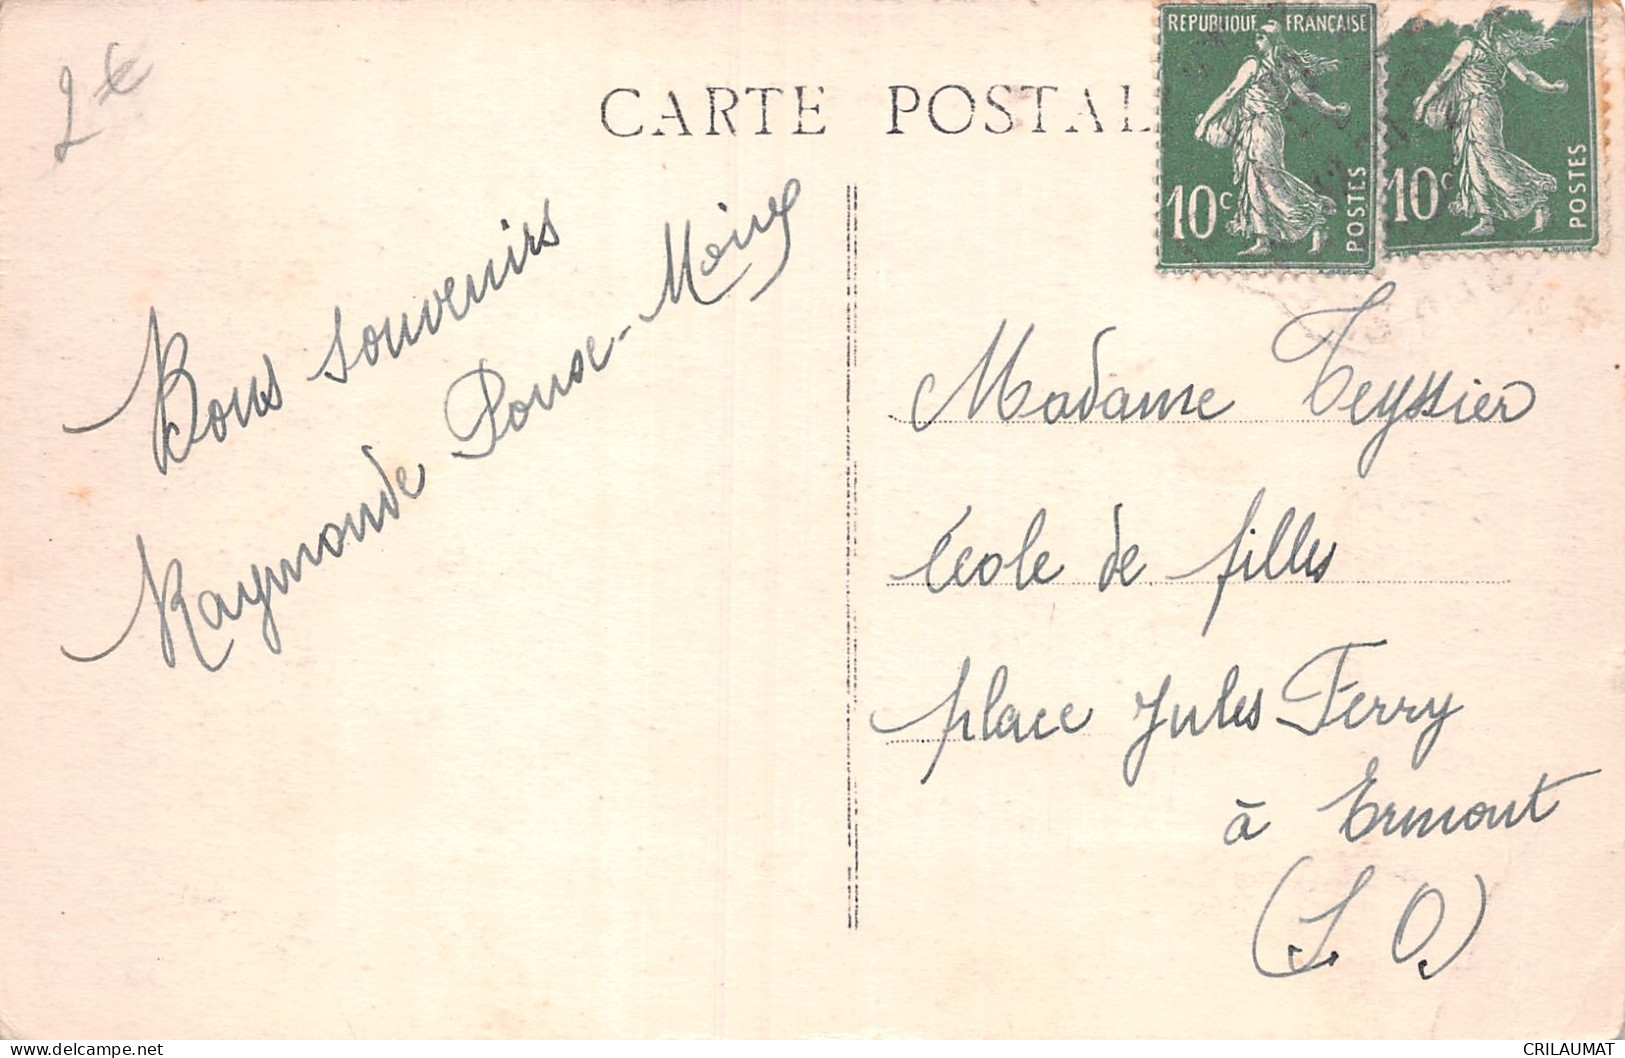 2€
CARTE POSTAL
REPUBLIQUE FRANÇAISE
10c
POSTES
10c
POSTES
Bons souvenirs
Raymonde
Madame Teyssier
École de filles
place Jules Ferry
à Ermont
(S. O.)
CRILAUMAT